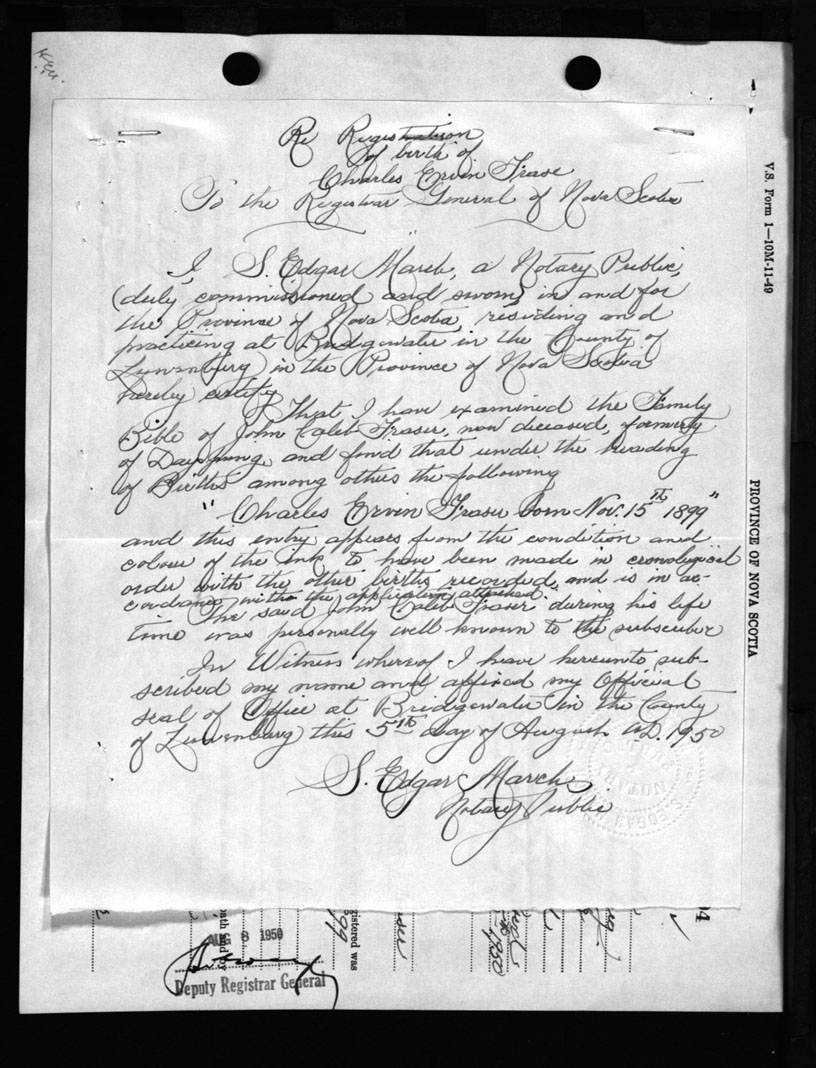 Re Registration
of birth of
Charles Ervin Frase
To the Registrar General of Nova Scotia
I S. Edgar March, a Notary Public,
duly commissioned and sworn in and for
the Province of Nova Scotia, residing and
practicing at Bridgewater in the County of
Lunenburg in the Province of Nova Scotia
hereby certify
That I have examined the Family
Bible of John Caleb Fraser, now deceased, formerly
of Dayspring and find that under the heading
of Births among others the following
"Charles Ervin Fraser born Nov. 15th 1899"
and this entry appears from the condition and
colour of the ink to have been made in cronological
order with the other births recorded, and is in ac-
cordance with the application attached.
The said John Caleb Fraser during his life
time was personally well known to the subscriber
In Witness whereof I have hereunto sub-
scribed my name and affixed my Official
seal of Office at Bridgewater in the County
of Lunenburg this 5th day of August AD. 1950
S. Edgar March
Notary Public
AUG 8 1950
Deputy Registrar General
V.S. Form 1—10M-11-49
PROVINCE OF NOVA SCOTIA
istered was
1950